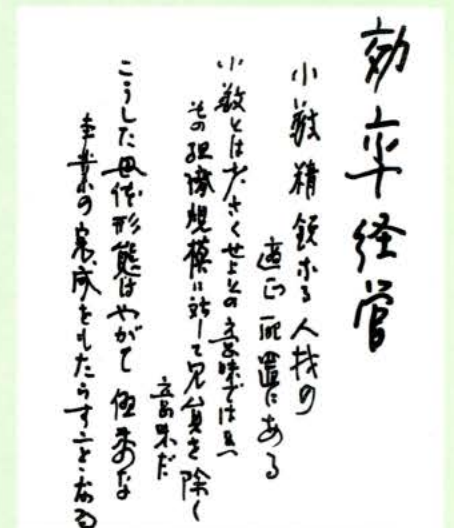 効率経営
小数精鋭なる人材の
適正配置にある
小数とは小さくせよとの意味では
その組織規模に対して冗員を除く
意味だ
こうした母体形態はやがて
の完成をもたらすことになる